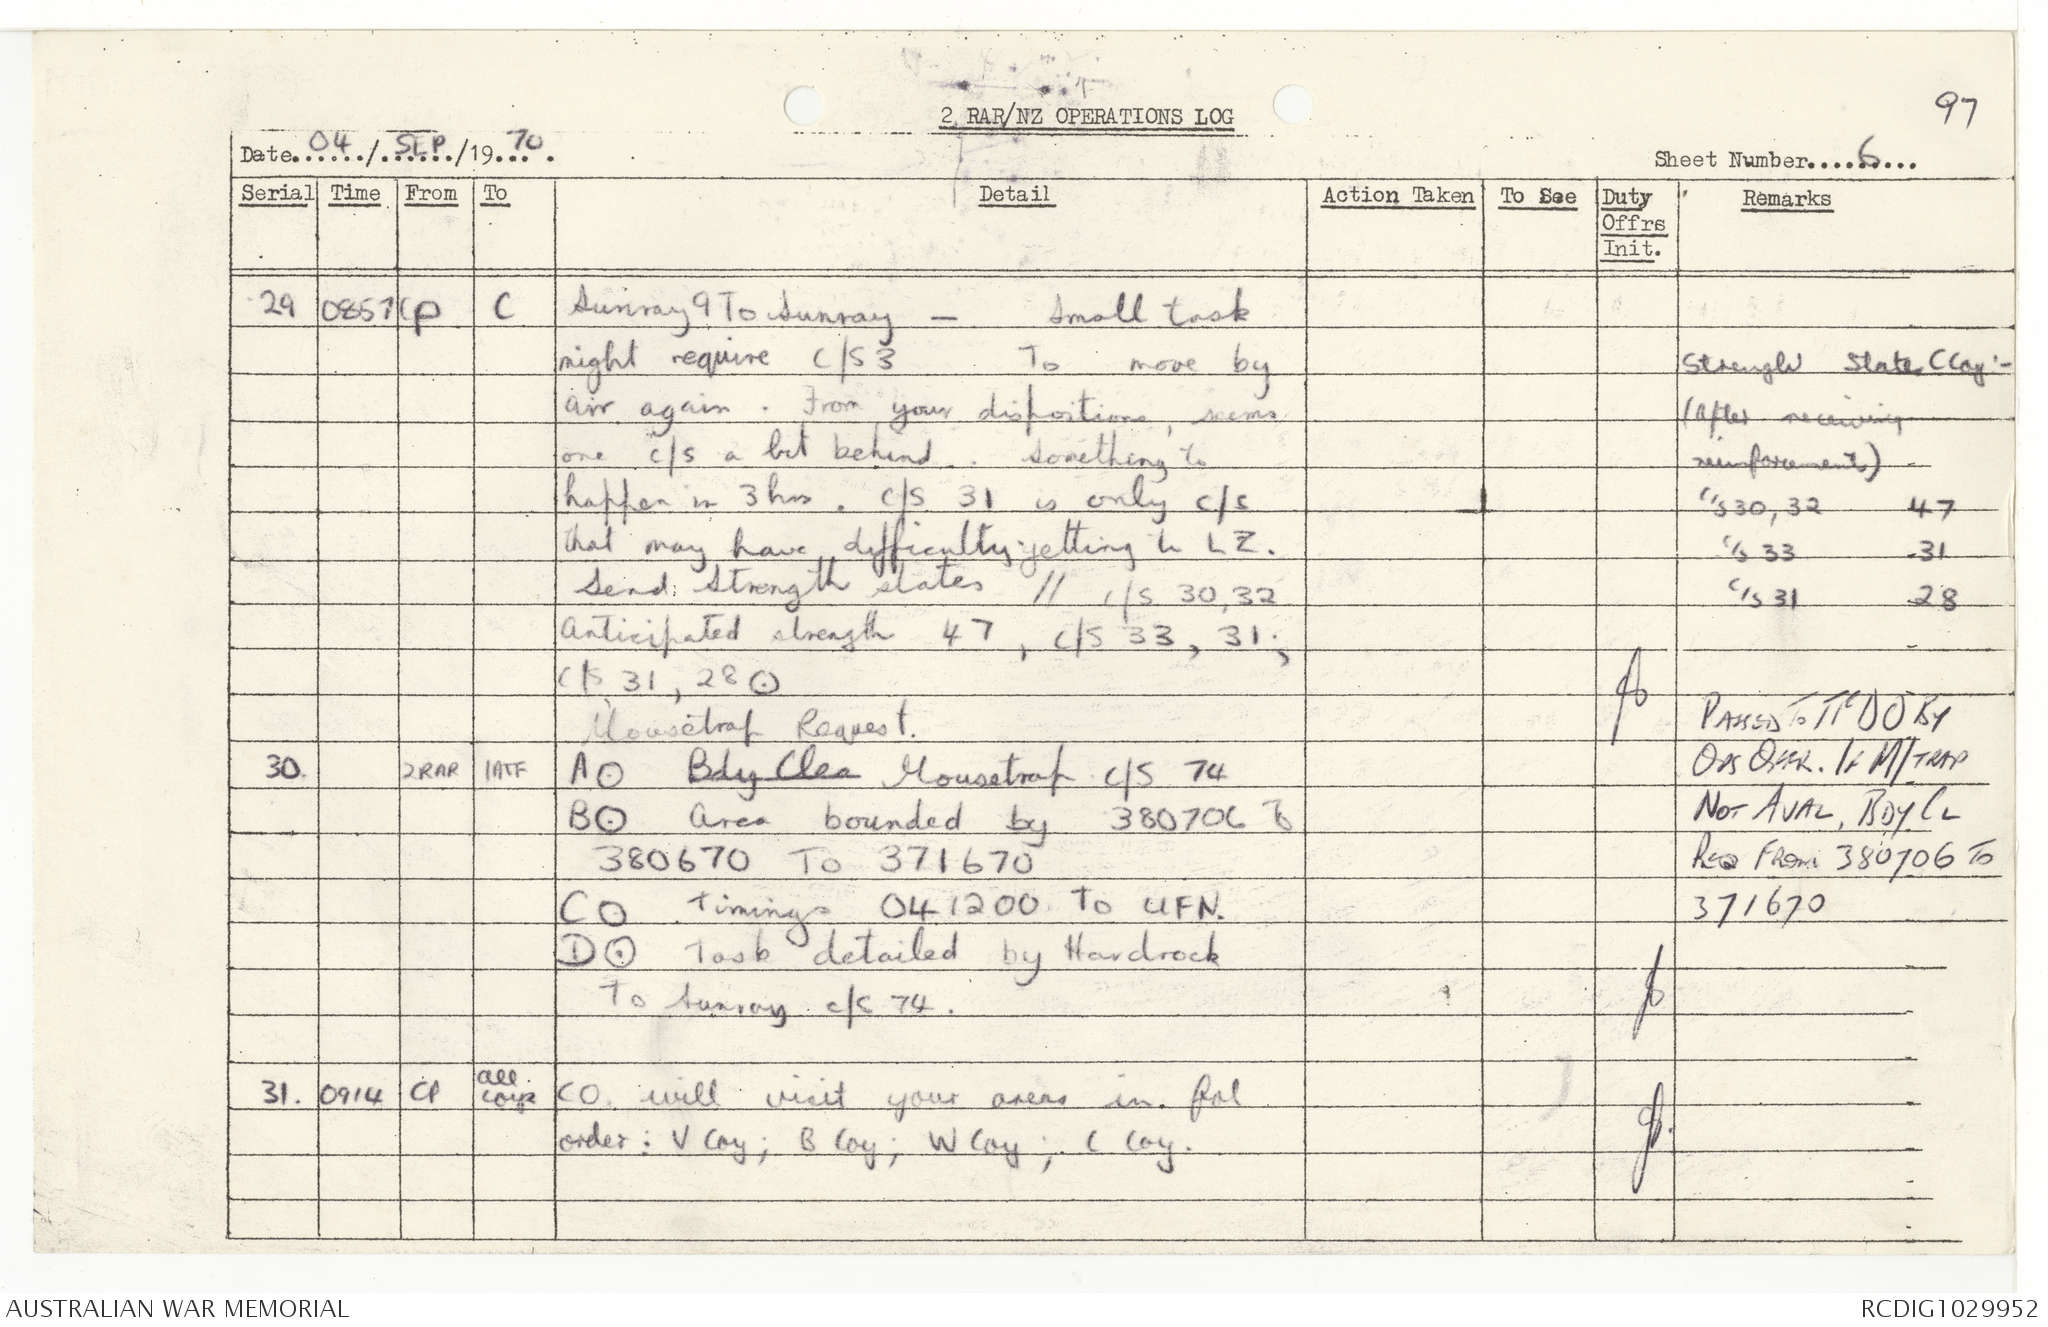 97
2 RAR/NZ OPERATIONS LOG
Date......04/.SEP./19.70.
Sheet Number.....6....
Serial Time From To Detail Action Taken To See Duty Offrs Init. Remarks
29 0857 CP C Sunray 9 To Sunray — Small task
might require C/S 3 To move by
air again. From your dispositions, seems
one C/S a bit behind. Something to
happen in 3 hrs. C/S 31 is only C/S
that may have difficulty getting to LZ.
Send Strength states // C/S 30, 32
Anticipated strength 47, C/S 33, 31;
C/S 31, 28 ⊙
Mousetrap Request.
Strength State C Coy:-
(After receiving
reinforcements)
C/S 30, 32 47
C/S 33 31
C/S 31 28
30. 2RAR 1ATF A ⊙ Bdy Clea Mousetrap C/S 74
B ⊙ Area bounded by 380706 To
380670 To 371670
C ⊙ Timings 041200 To UFN.
D ⊙ Task detailed by Hardrock
To Sunray C/S 74.
PASSED TO TF DO BY
OPS OFFR. IF M/TRAP
NOT AVAL, BDY CL
REQ FROM 380706 TO
371670
31. 0914 CP all coys CO. will visit your areas in fol
order: V Coy; B Coy; W Coy; C Coy.
AUSTRALIAN WAR MEMORIAL
RCDIG1029952